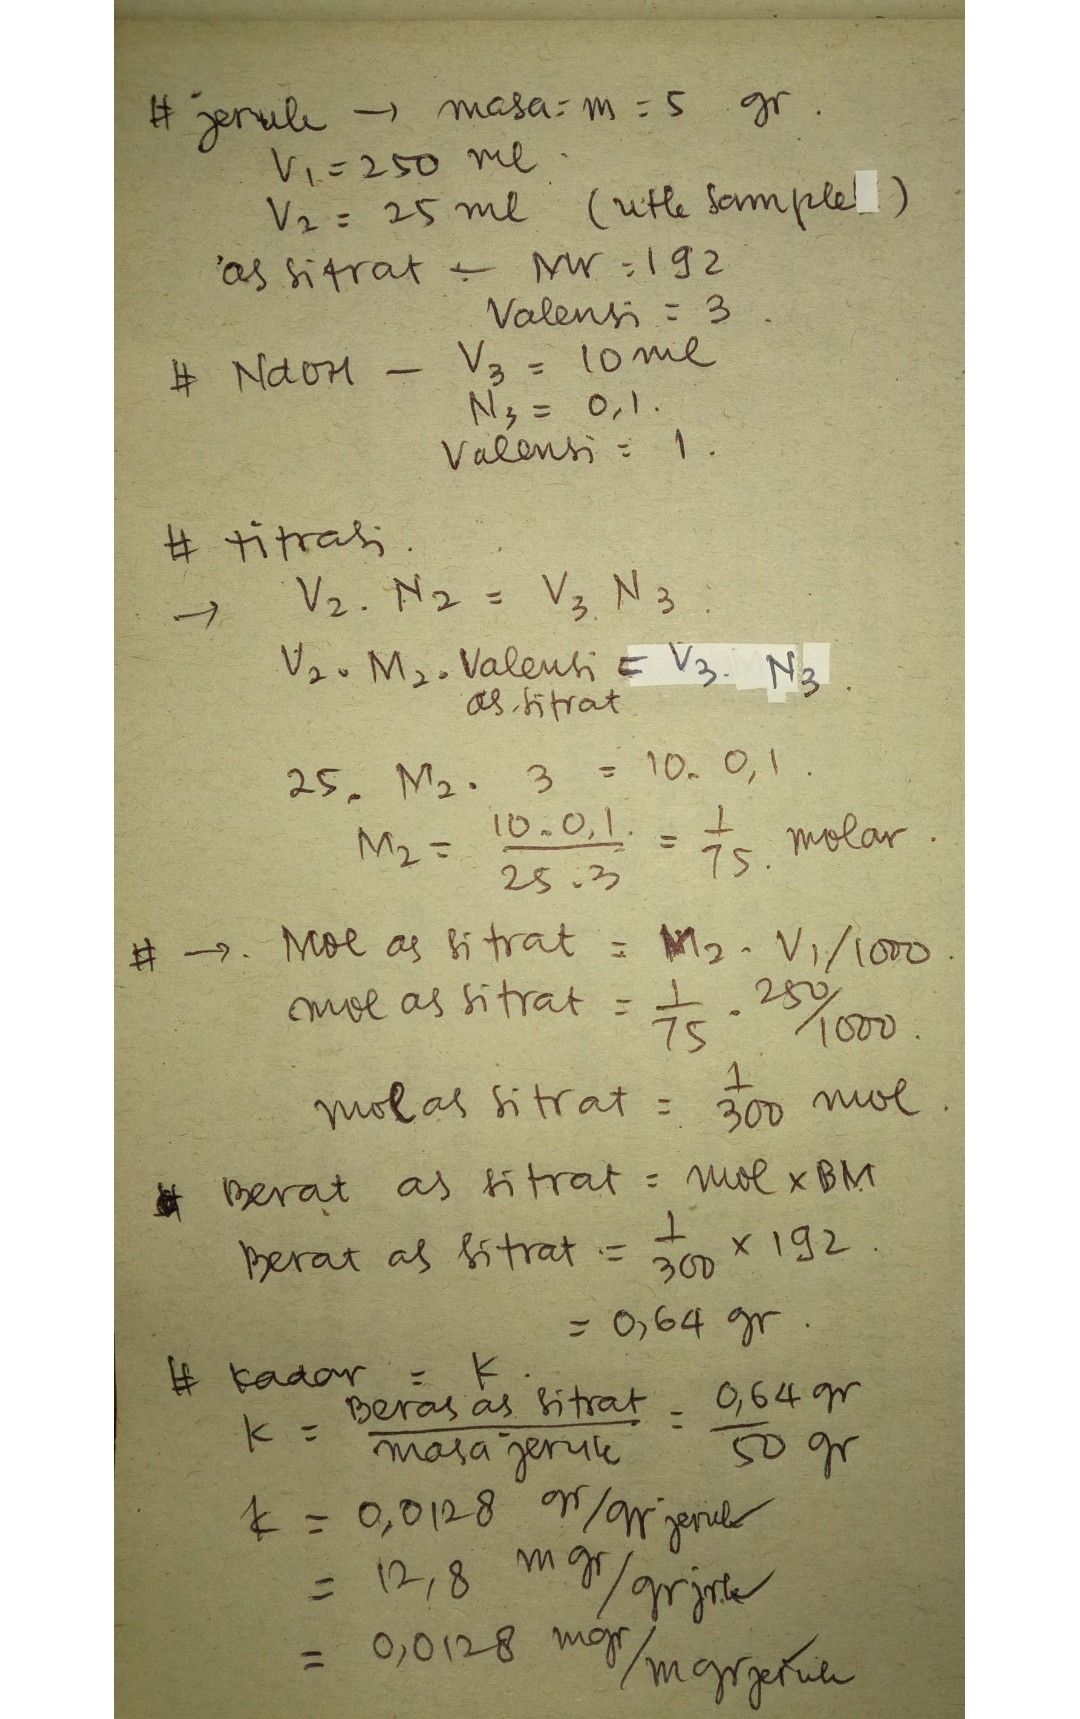 # jeruk → masa = m = 5 gr.
V₁ = 250 ml.
V₂ = 25 ml (utk sample)
as sitrat ← MW = 192
Valensi = 3.
# NaOH — V₃ = 10 ml
N₃ = 0,1.
Valensi = 1.
# titrasi.
→ V₂. N₂ = V₃. N₃.
V₂. M₂. Valensi = V₃. N₃.
as. sitrat
25. M₂. 3 = 10. 0,1.
M₂ = 10. 0,1. / 25. 3 = 1/75. molar.
# →. Mol as sitrat = M₂. V₁/1000.
mol as sitrat = 1/75. 250/1000.
mol as sitrat = 1/300 mol.
# Berat as sitrat = mol x BM
Berat as sitrat = 1/300 x 192.
= 0,64 gr.
# kadar = K.
K = Beras as sitrat / masa jeruk = 0,64 gr / 50 gr
K = 0,0128 gr/gr jeruk
= 12,8 mgr/gr jrk
= 0,0128 mgr/mgr jeruk